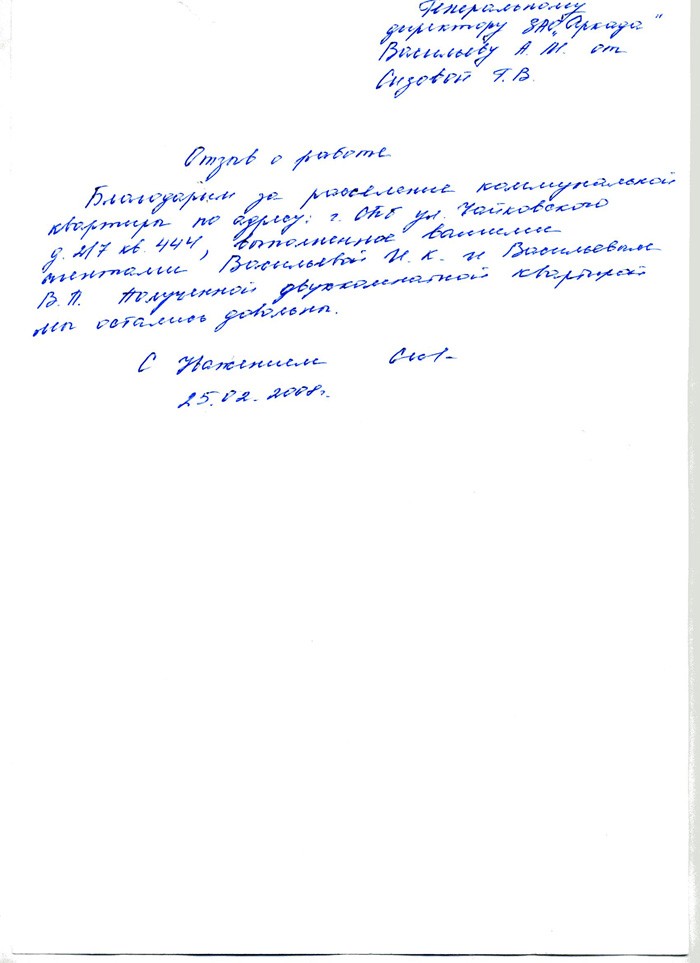 Генеральному
директору ЗАО „Аркада"
Васильеву А. М. от
Сизовой Г. В.
Отзыв о работе
Благодарим за расселение коммунальной
квартиры по адресу: г. СПб ул. Чайковского
д. 2/7 кв. 444, выполненное вашими
агентами Васильевой И. К. и Васильевым
В. П. Полученной двухкомнатной квартирой
мы остались довольны.
С Уважением
25.02.2008г.